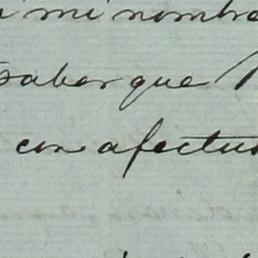 mi nombre
saber que
con afectuo